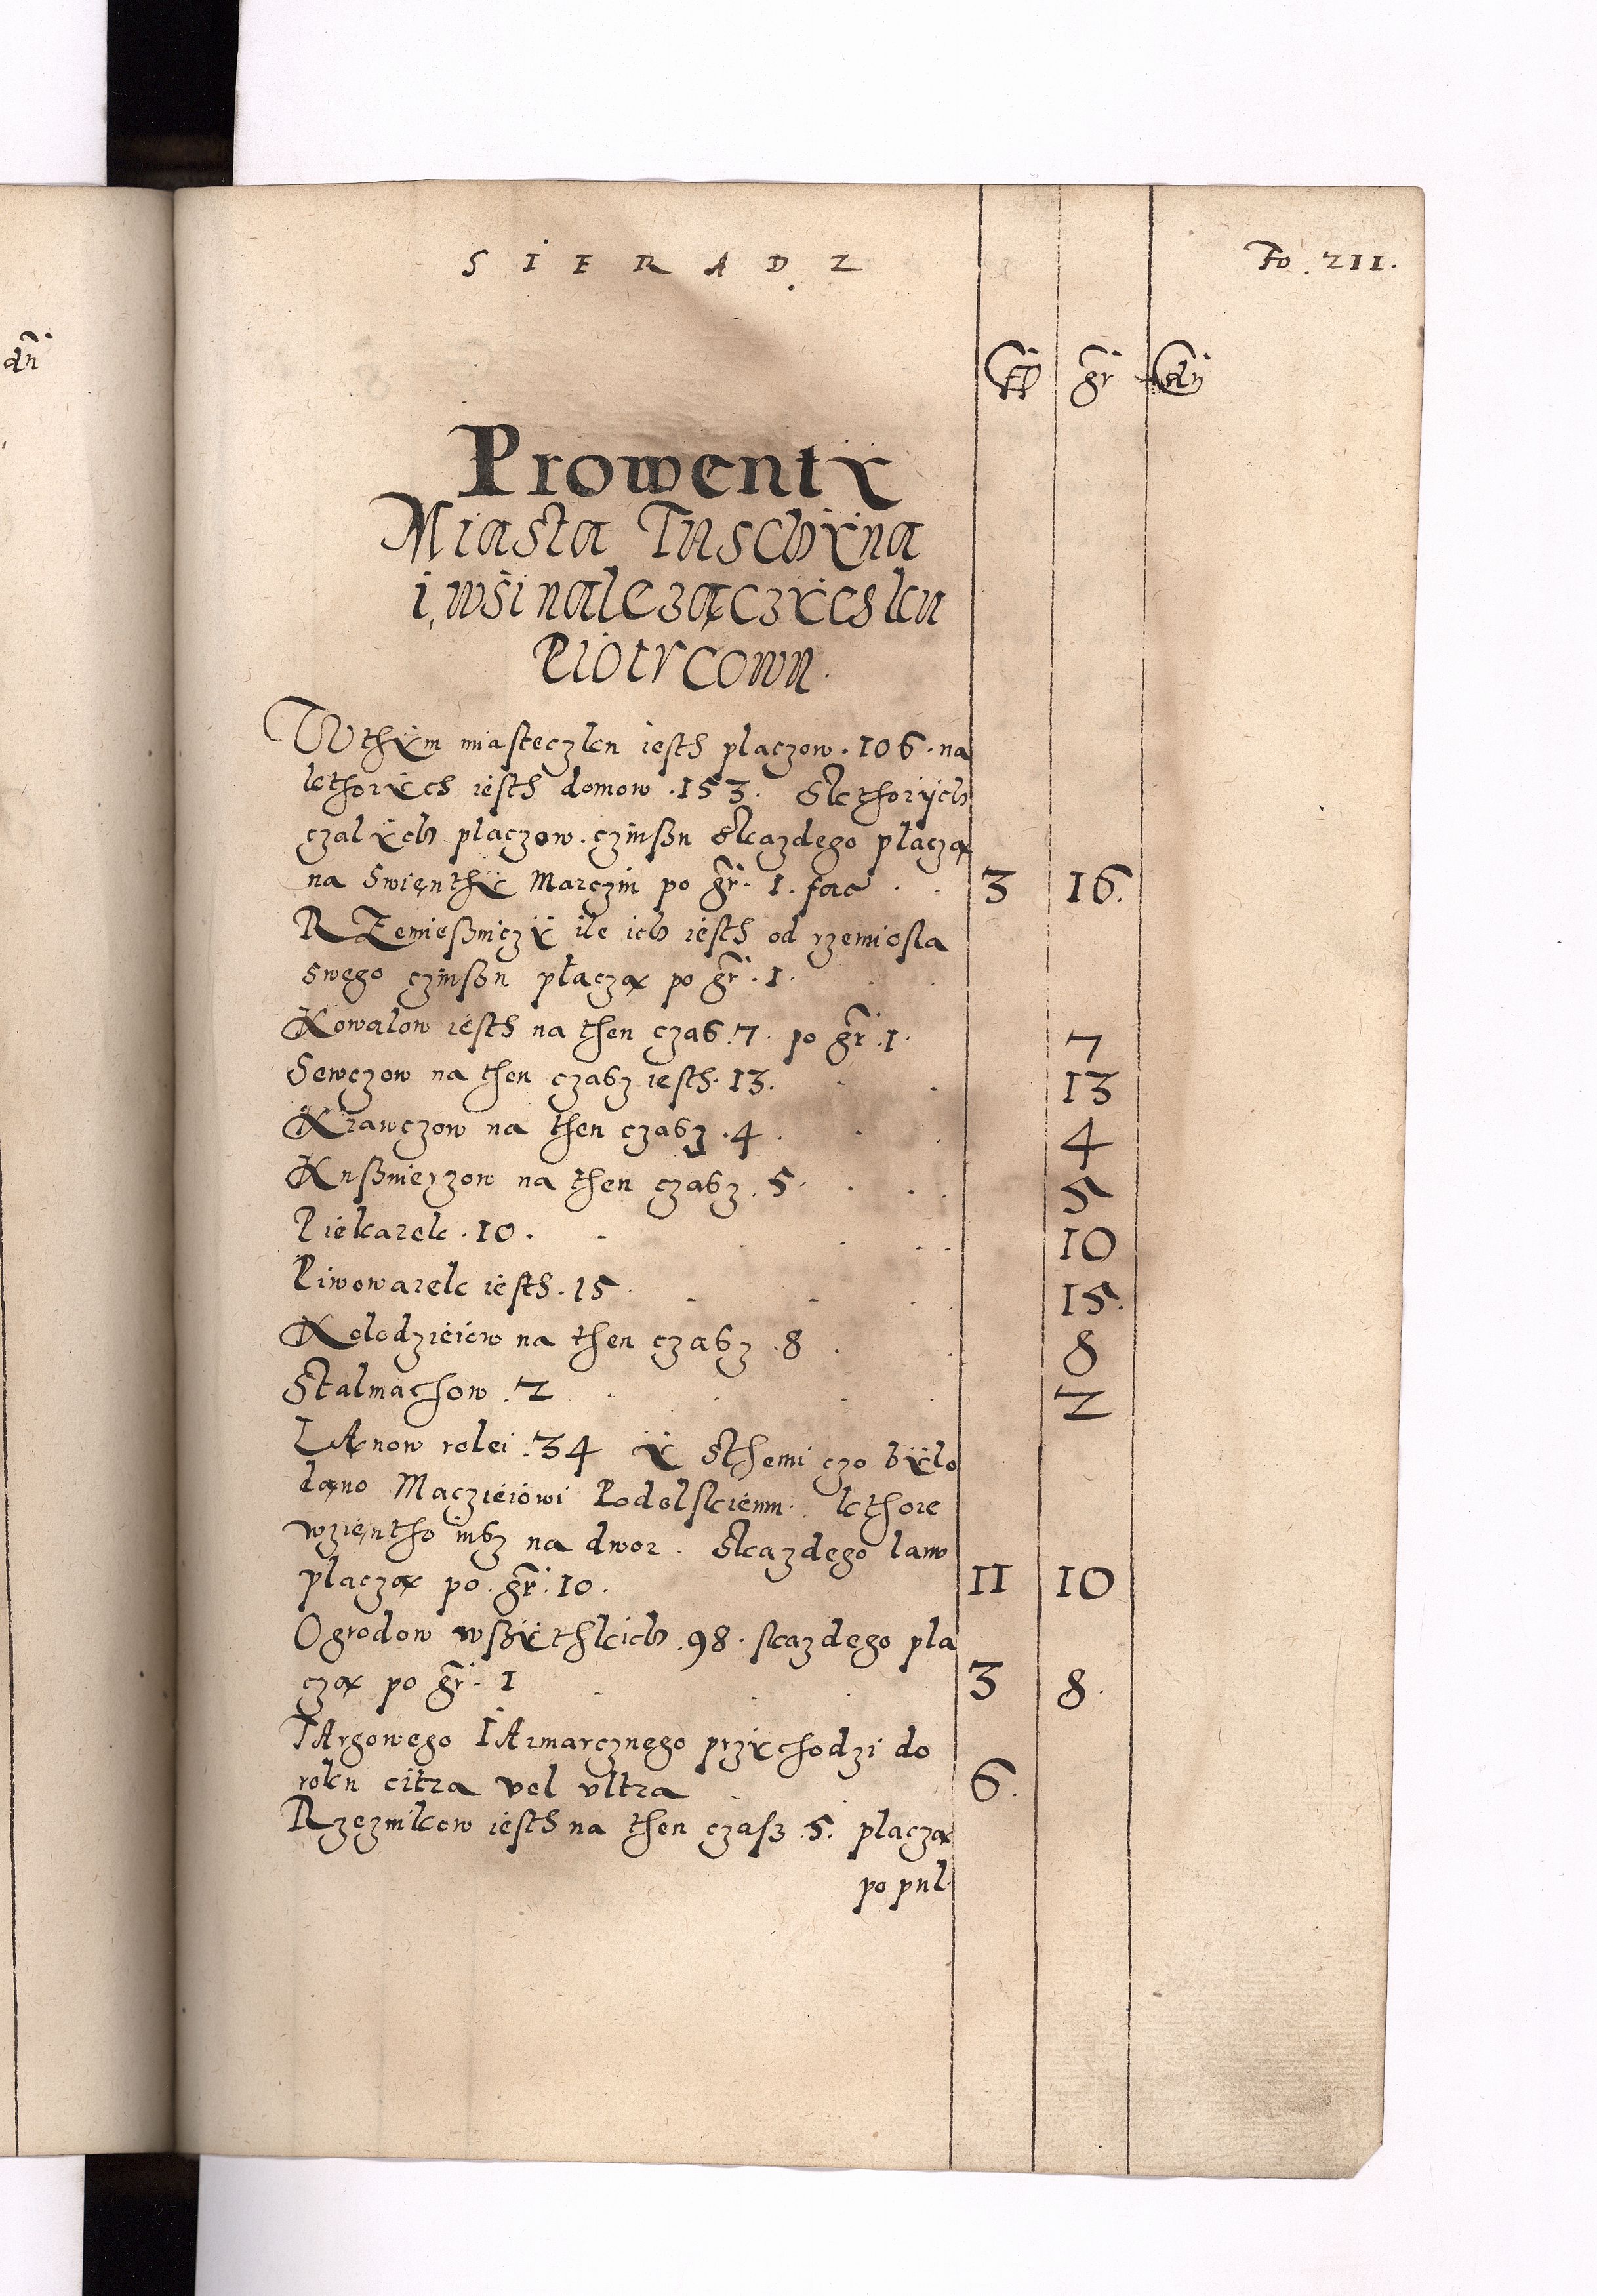 SIERADZ
Fo. 211.
dn̄
fl gr dn̄
Prowentÿ
Miasta Tuschÿna
i wsi nalezączÿcsku
Piotrcowu.
W thÿm miasteczku iesth placzow .106. na
kthorÿch iesth domow .153. Skthorijch
czalÿch placzow. czinssu Skazdego płaczą
na Swięnthÿ Marczin po gr. 1. fac 3 16.
RZemiessniczÿ ile ich iesth od rzemiosla
swego czinssu płaczą po gr. 1.
Kowalow iesth na then czas .7. po gr .1. 7
Sewczow na then czasz iesth. 13. 13
Krawczow na then czasz .4. 4
Kussnierzow na then czasz .5. 5
Piekarek .10. 10
Piwowarek iesth .15 15.
Kolodzieiow na then czasz .8 8
Stalmachow .2 2
ŁAnow rolei .34 ÿ Sthemi czo bÿlo
dano Maczieiowi Podolskiemu. kthore
wzięntho iusz na dwor. Skazdego lanu
placzą po gr. 10. 11 10
Ogrodow wssÿthkich .98. skazdego pla
czą po gr. 1 3 8.
TArgowego IArmarcznego przÿchodzi do
roku citra vel ultra 6.
Rzeznikow iesth na then czasz .5. placzą
po pul.